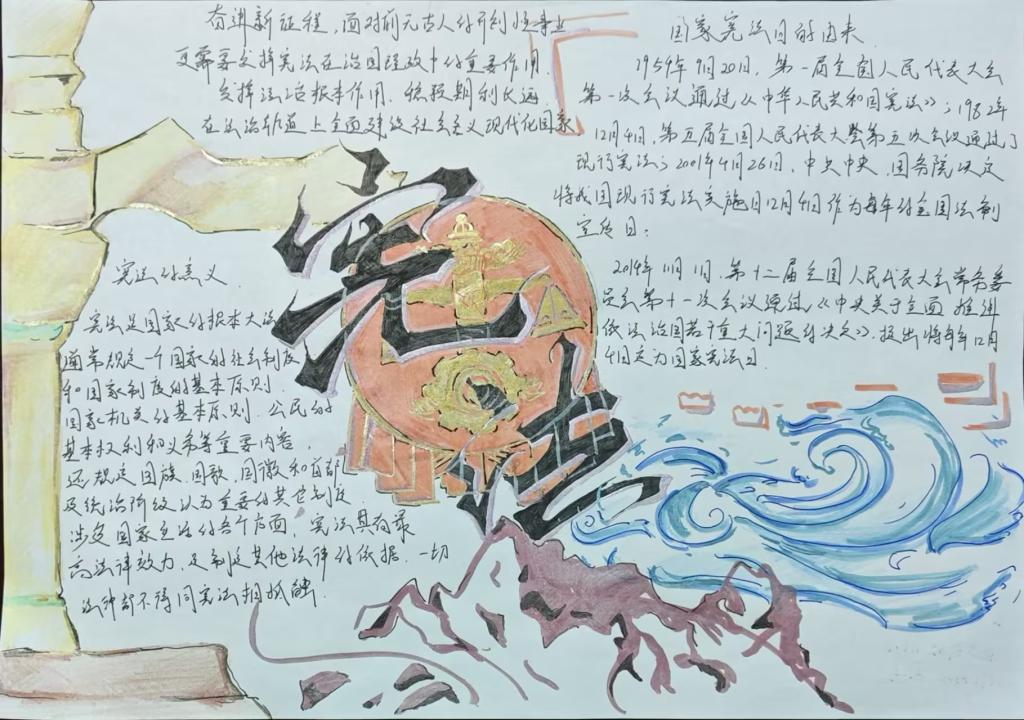 奋进新征程，面对前无古人的开创性事业
更需要发挥宪法在治国理政中的重要作用.
发挥法治根本作用.稳预期利长远.
在法治轨道上全面建设社会主义现代化国家
国家宪法日的由来.
1954年9月20日，第一届全国人民代表大会
第一次会议通过《中华人民共和国宪法》；1982年
12月4日，第五届全国人民代表大会第五次会议通过了
现行宪法；2001年4月26日，中共中央，国务院决定
将我国现行宪法实施日12月4日作为每年的全国法制
宣传日；
2014年11月1日.第十二届全国人民代表大会常务委
员会第十一次会议通过《中央关于全面推进
依法治国若干重大问题的决定》.提出将每年12月
4日定为国家宪法日.
宪法
宪法的意义.
宪法是国家的根本大法
通常规定一个国家的社会制度
和国家制度的基本原则.
国家机关的基本原则.公民的
基本权利和义务等重要内容，
还规定国旗，国歌，国徽和首都
及统治阶级认为重要的其它制度.
涉及国家生活的各个方面，宪法具有最
高法律效力，是制定其他法律的依据.一切
法律都不得同宪法相抵触.